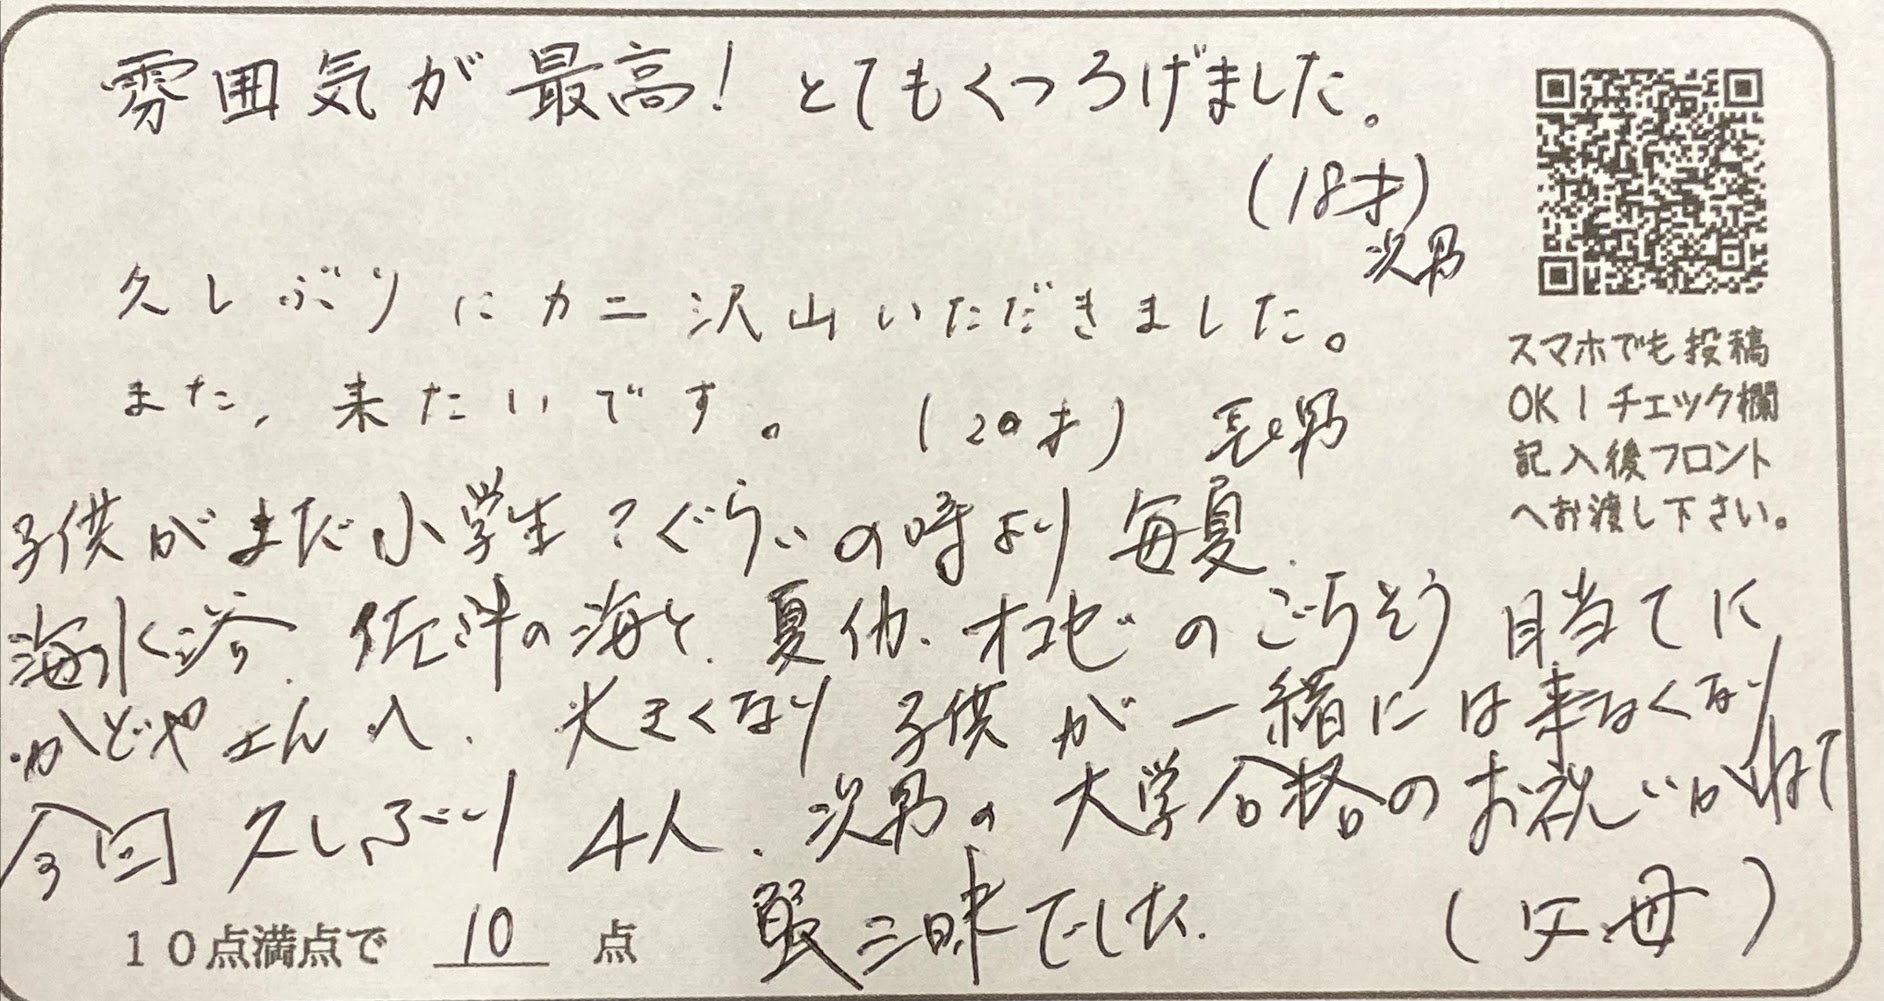 雰囲気が最高！とてもくつろげました。
（18才）
次男
久しぶりにカニ沢山いただきました。
また、来たいです。（20才）長男
スマホでも投稿
OK！チェック欄
記入後フロント
へお渡し下さい。
子供がまだ小学生？ぐらいの時より毎夏
海水浴、佐津の海と、夏 オコゼのごちそう目当てに
かどやさんへ、大きくなり子供が一緒には来なくなり
今回久しぶり4人、次男の大学合格のお祝いかねて
三昧でした。（父、母）
10点満点で 10 点